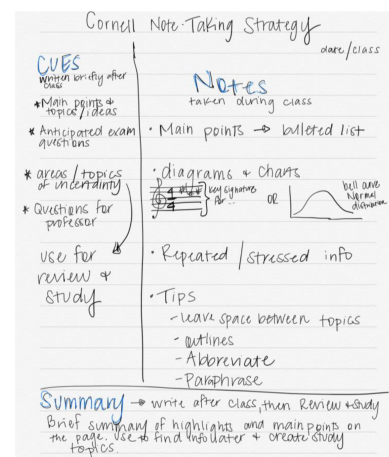 Cornell Note-Taking Strategy
date/class
CUES
written briefly after
class
* Main points &
topics/ideas
* Anticipated exam
questions
* areas/topics
of uncertainty
* Questions for
professor
use for
review &
study
Notes
taken during class
• Main points → bulleted list
• diagrams & charts
4
4
key signature
for ...
OR
bell curve
Normal
distribution
• Repeated/stressed info
• Tips
- leave space between topics
- outlines
- Abbreviate
- Paraphrase
Summary → write after class, then Review & study
Brief summary of highlights and main points on
the page. Use to find info later & create study
topics.